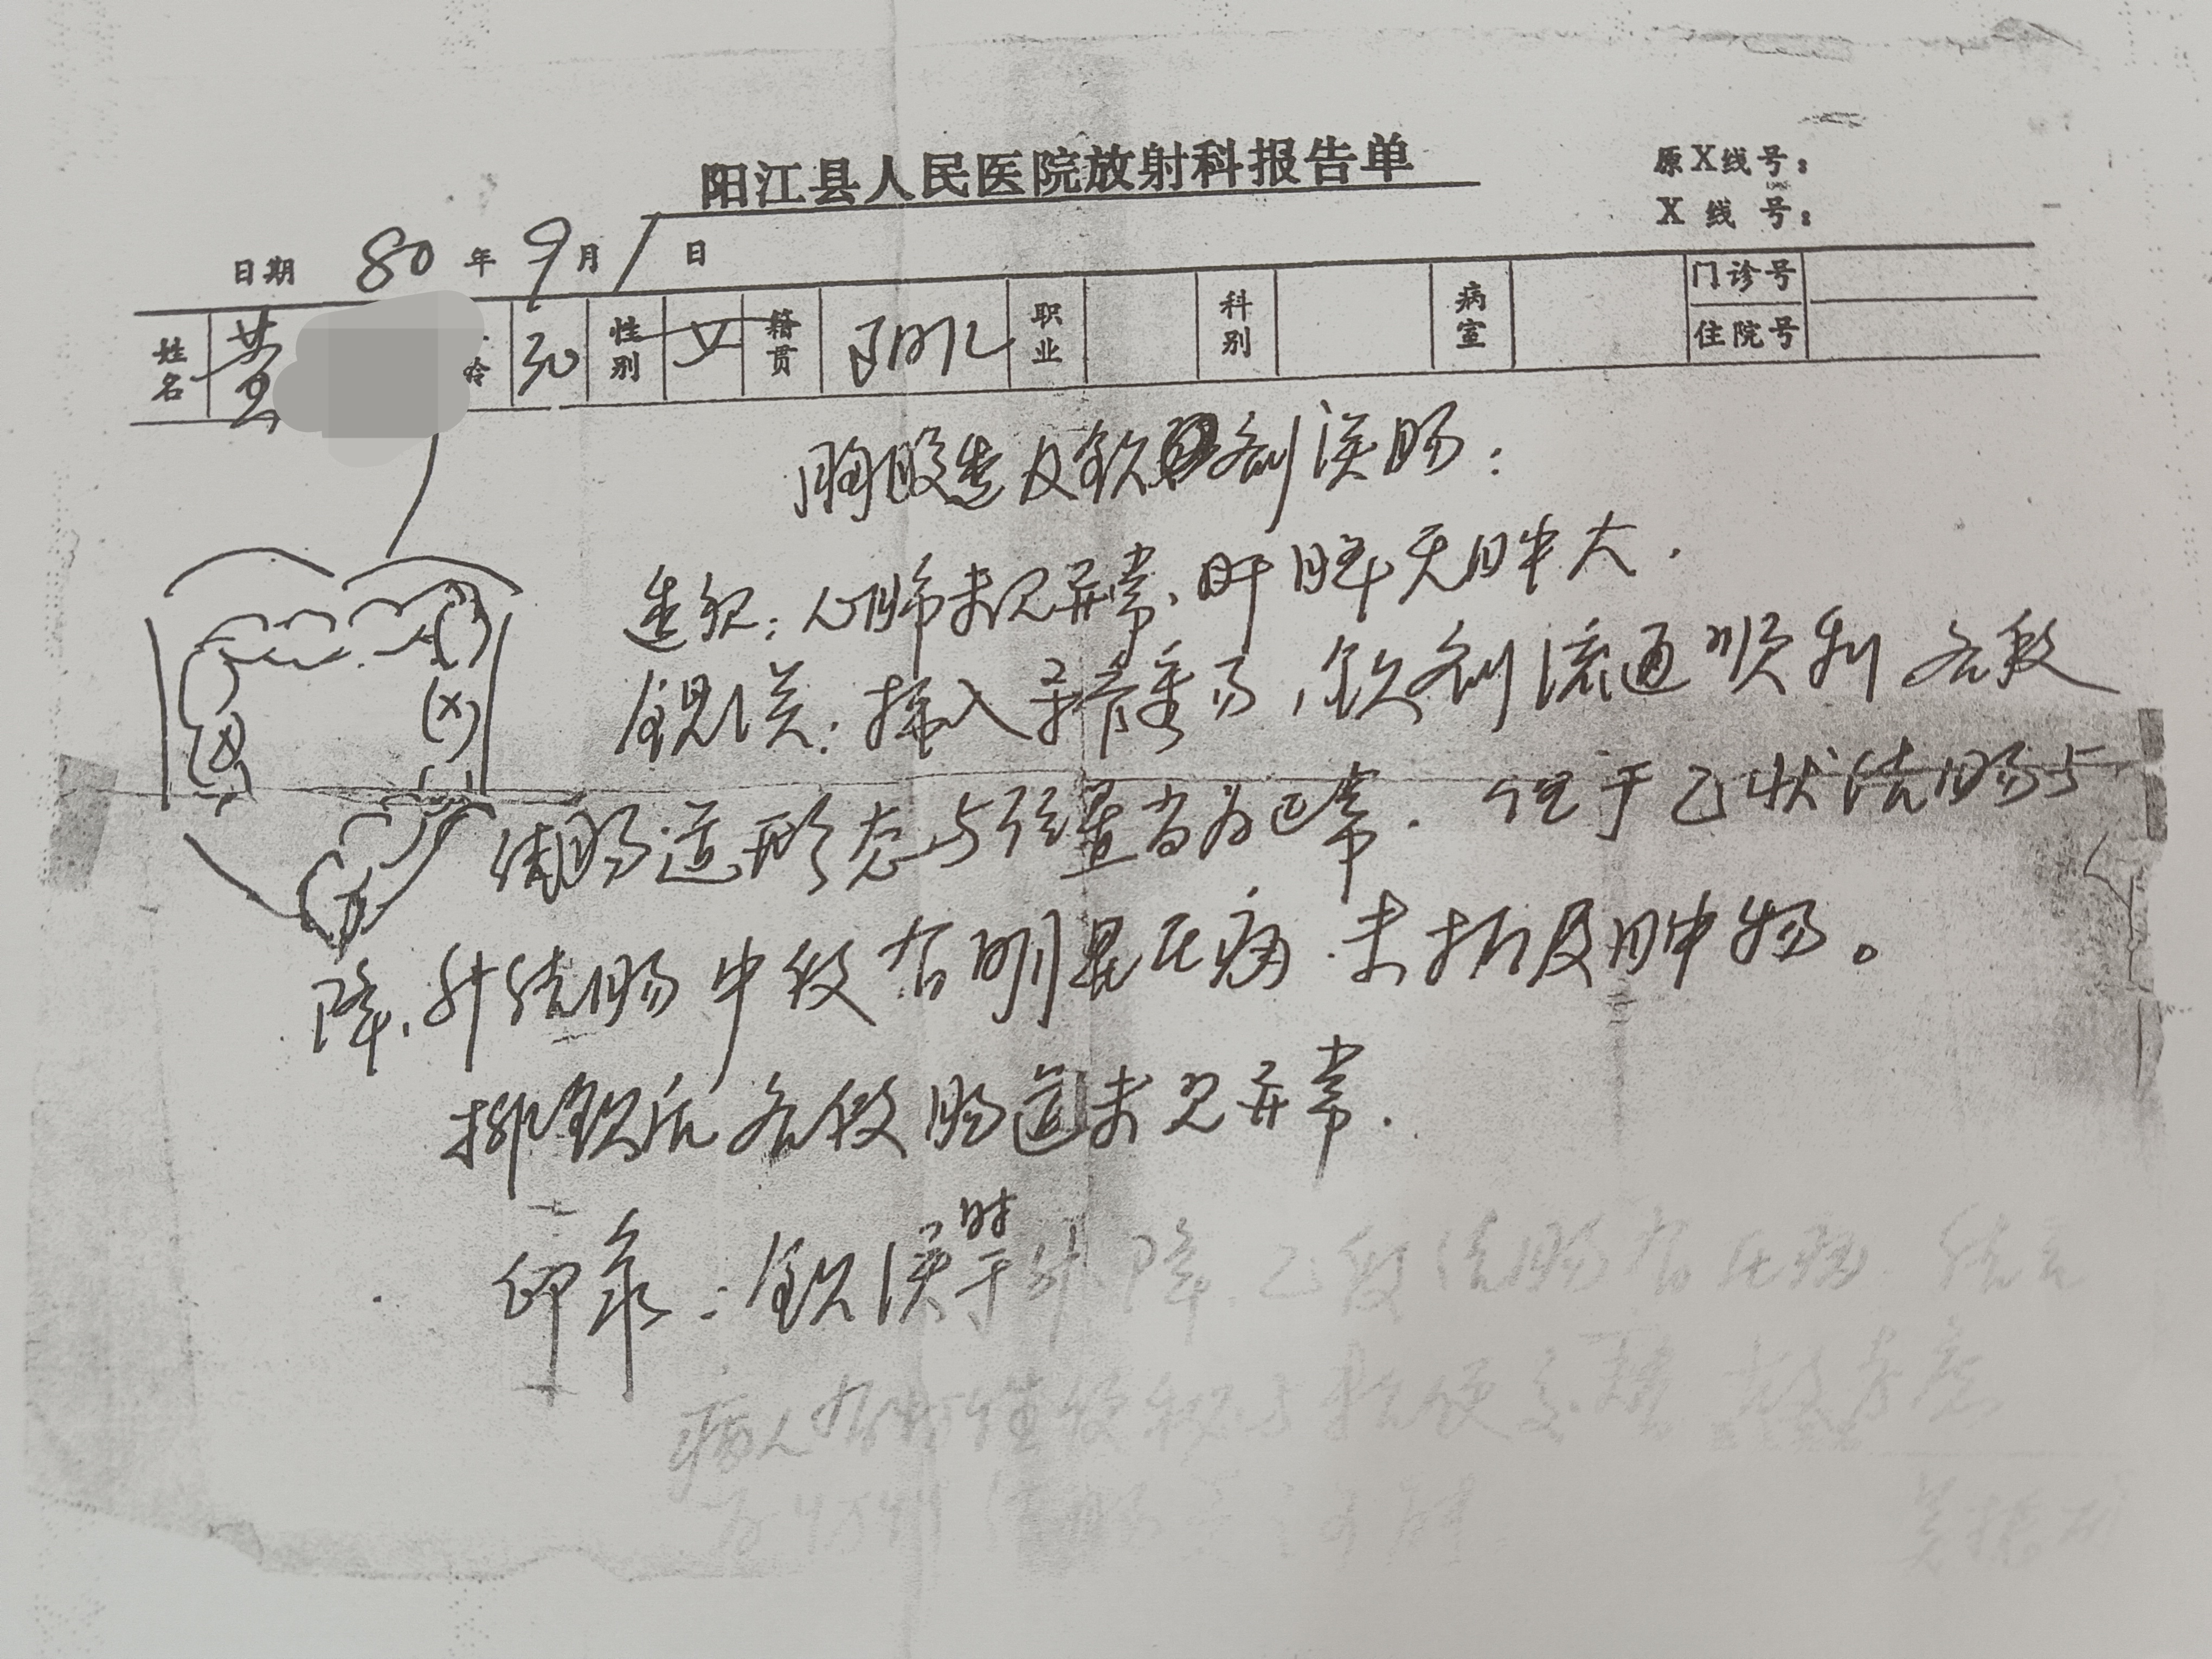 阳江县人民医院放射科报告单
原X线号：
X 线 号：
日期 80 年 9 月 1 日
姓名 黄 龄 30 性别 女 籍贯 阳江 职业 科别 病室 门诊号 住院号
胸腹透及钡剂灌肠：
透视：心肺未见异常、肝脾无肿大．
钡灌：插入导管重易，钡剂流通顺利 各段
结肠道形态与位置尚为正常．但于乙状结肠与
降、升结肠中段有明显压痛．未扪及肿物。
排钡后各段肠道未见异常．
印象：钡灌时于升、降、乙段结肠有压痛，结合
病人有 性便秘与 便交替 故考虑
为 结肠